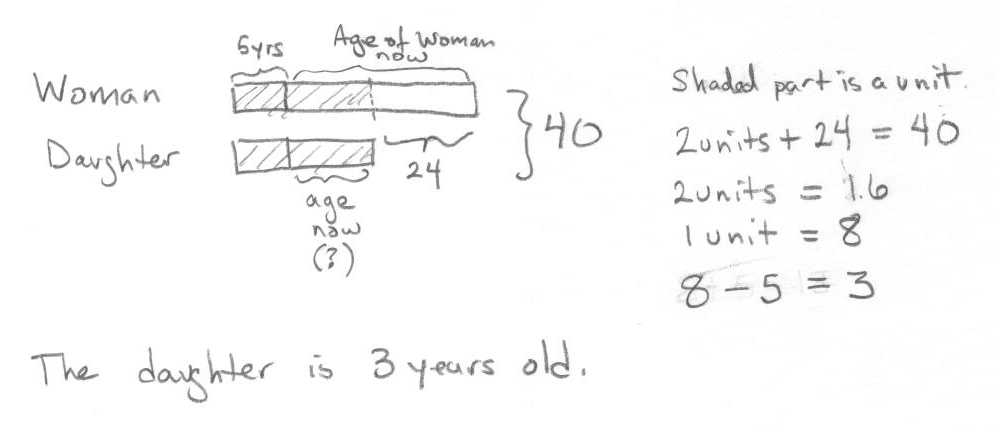 5yrs
Age of Woman
now
Woman
Daughter
40
24
age
now
(?)
Shaded part is a unit.
2units + 24 = 40
2units = 16
1 unit = 8
8 - 5 = 3
The daughter is 3 years old.